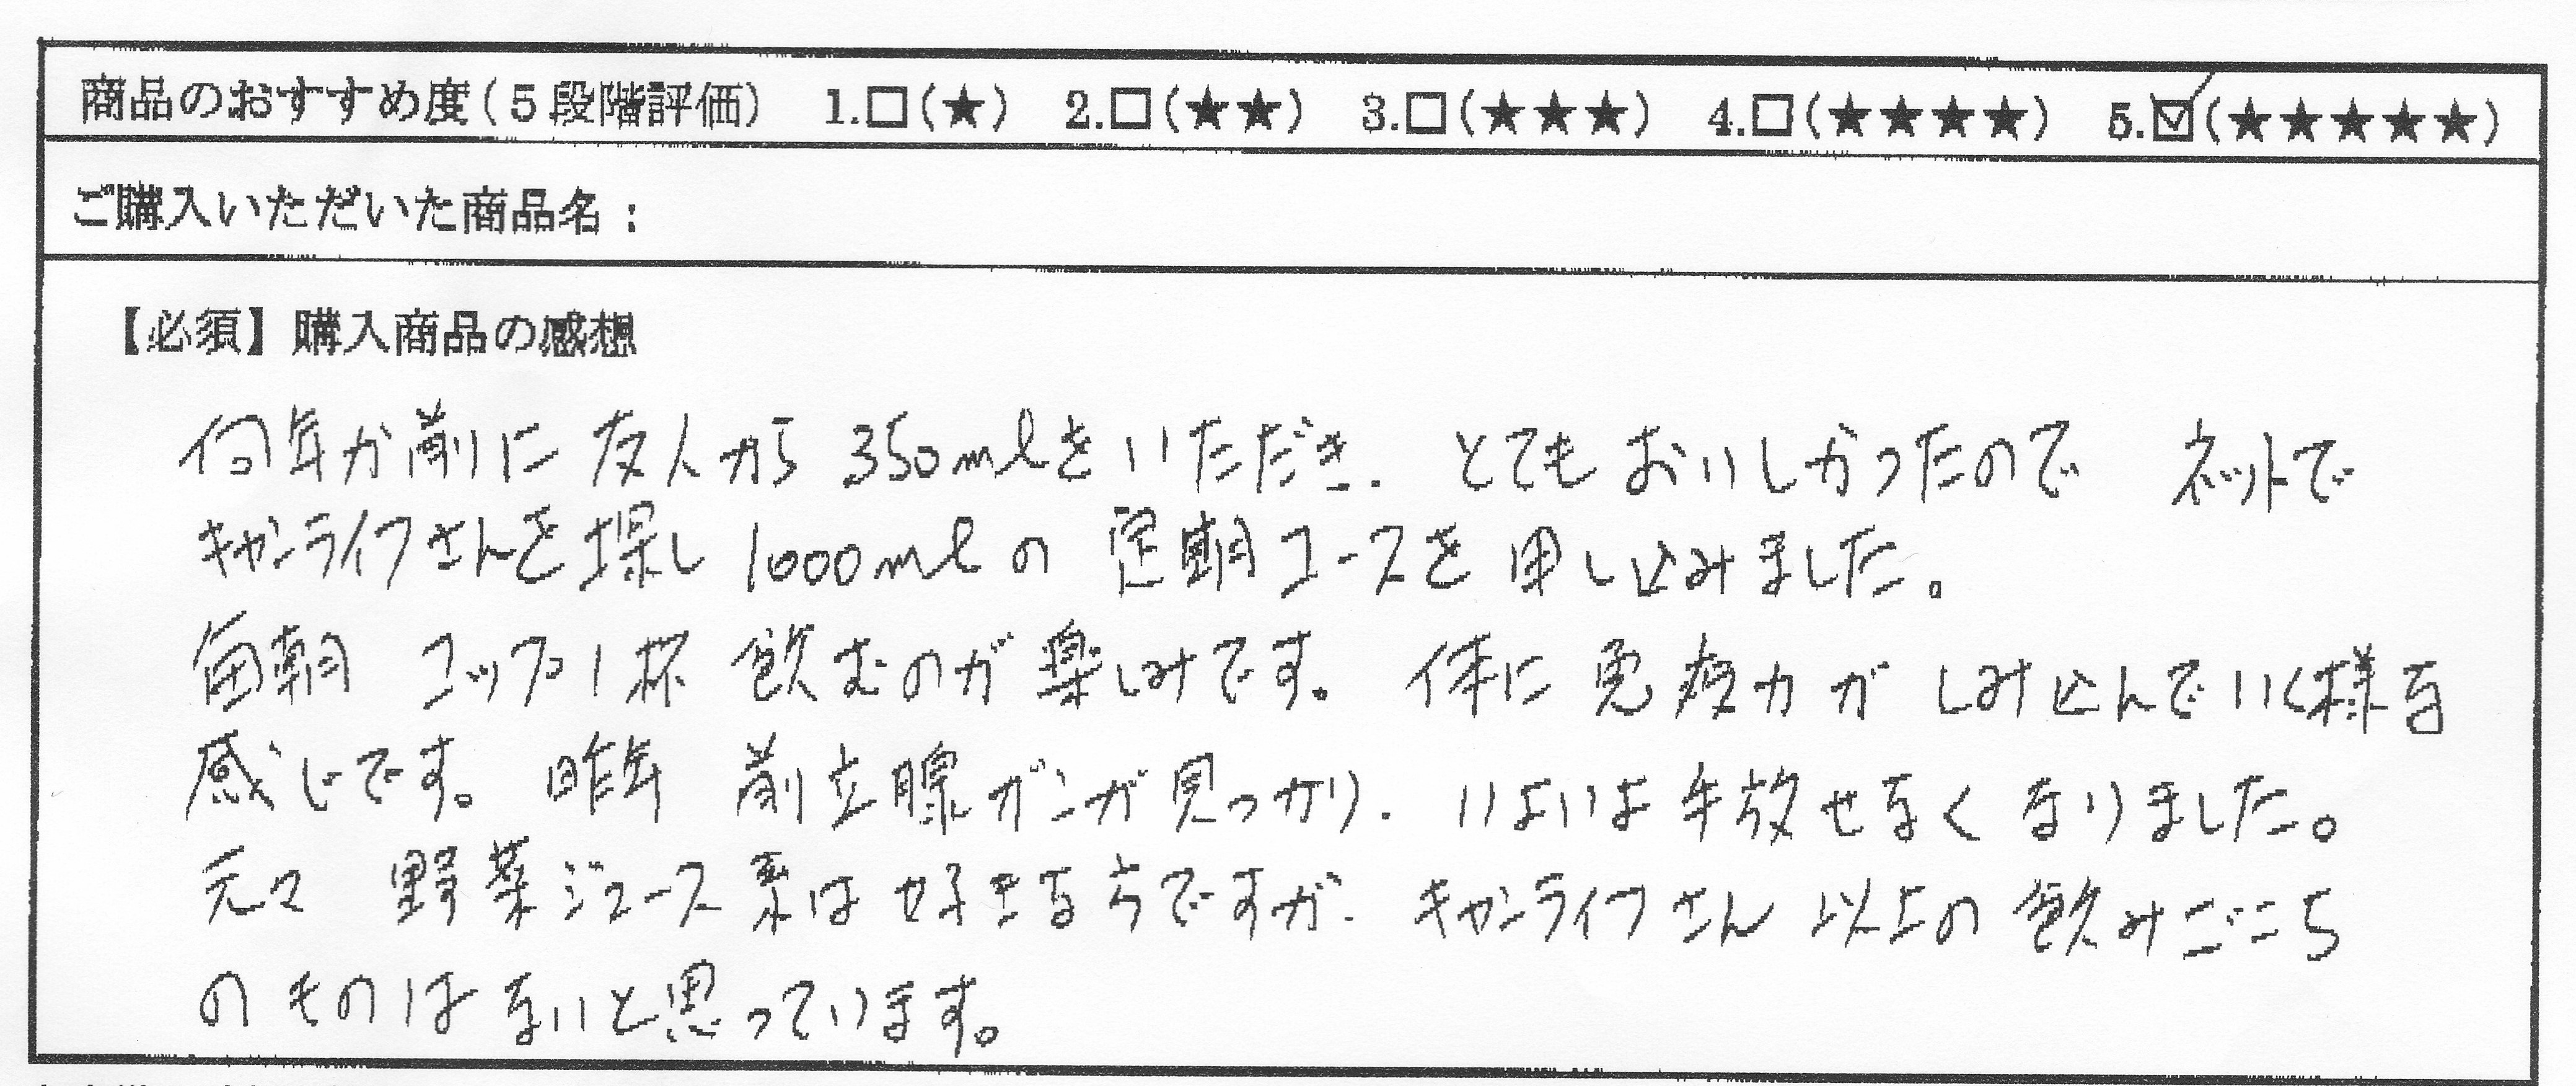 商品のおすすめ度(5段階評価) 1.□(★) 2.□(★★) 3.□(★★★) 4.□(★★★★) 5.☑(★★★★★)
ご購入いただいた商品名:
【必須】購入商品の感想
何年か前に友人から350mlをいただき、とてもおいしかったので ネットで
キャンライフさんを探し1000mlの定期コースを申し込みました。
毎朝 コップ1杯飲むのが楽しみです。体に免疫力がしみ込んでいく様な
感じです。昨年 前立腺ガンが見つかり、いよいよ手放せなくなりました。
元々 野菜ジュース系は好きな方ですが、キャンライフさん以上の飲みごこち
のものはないと思っています。